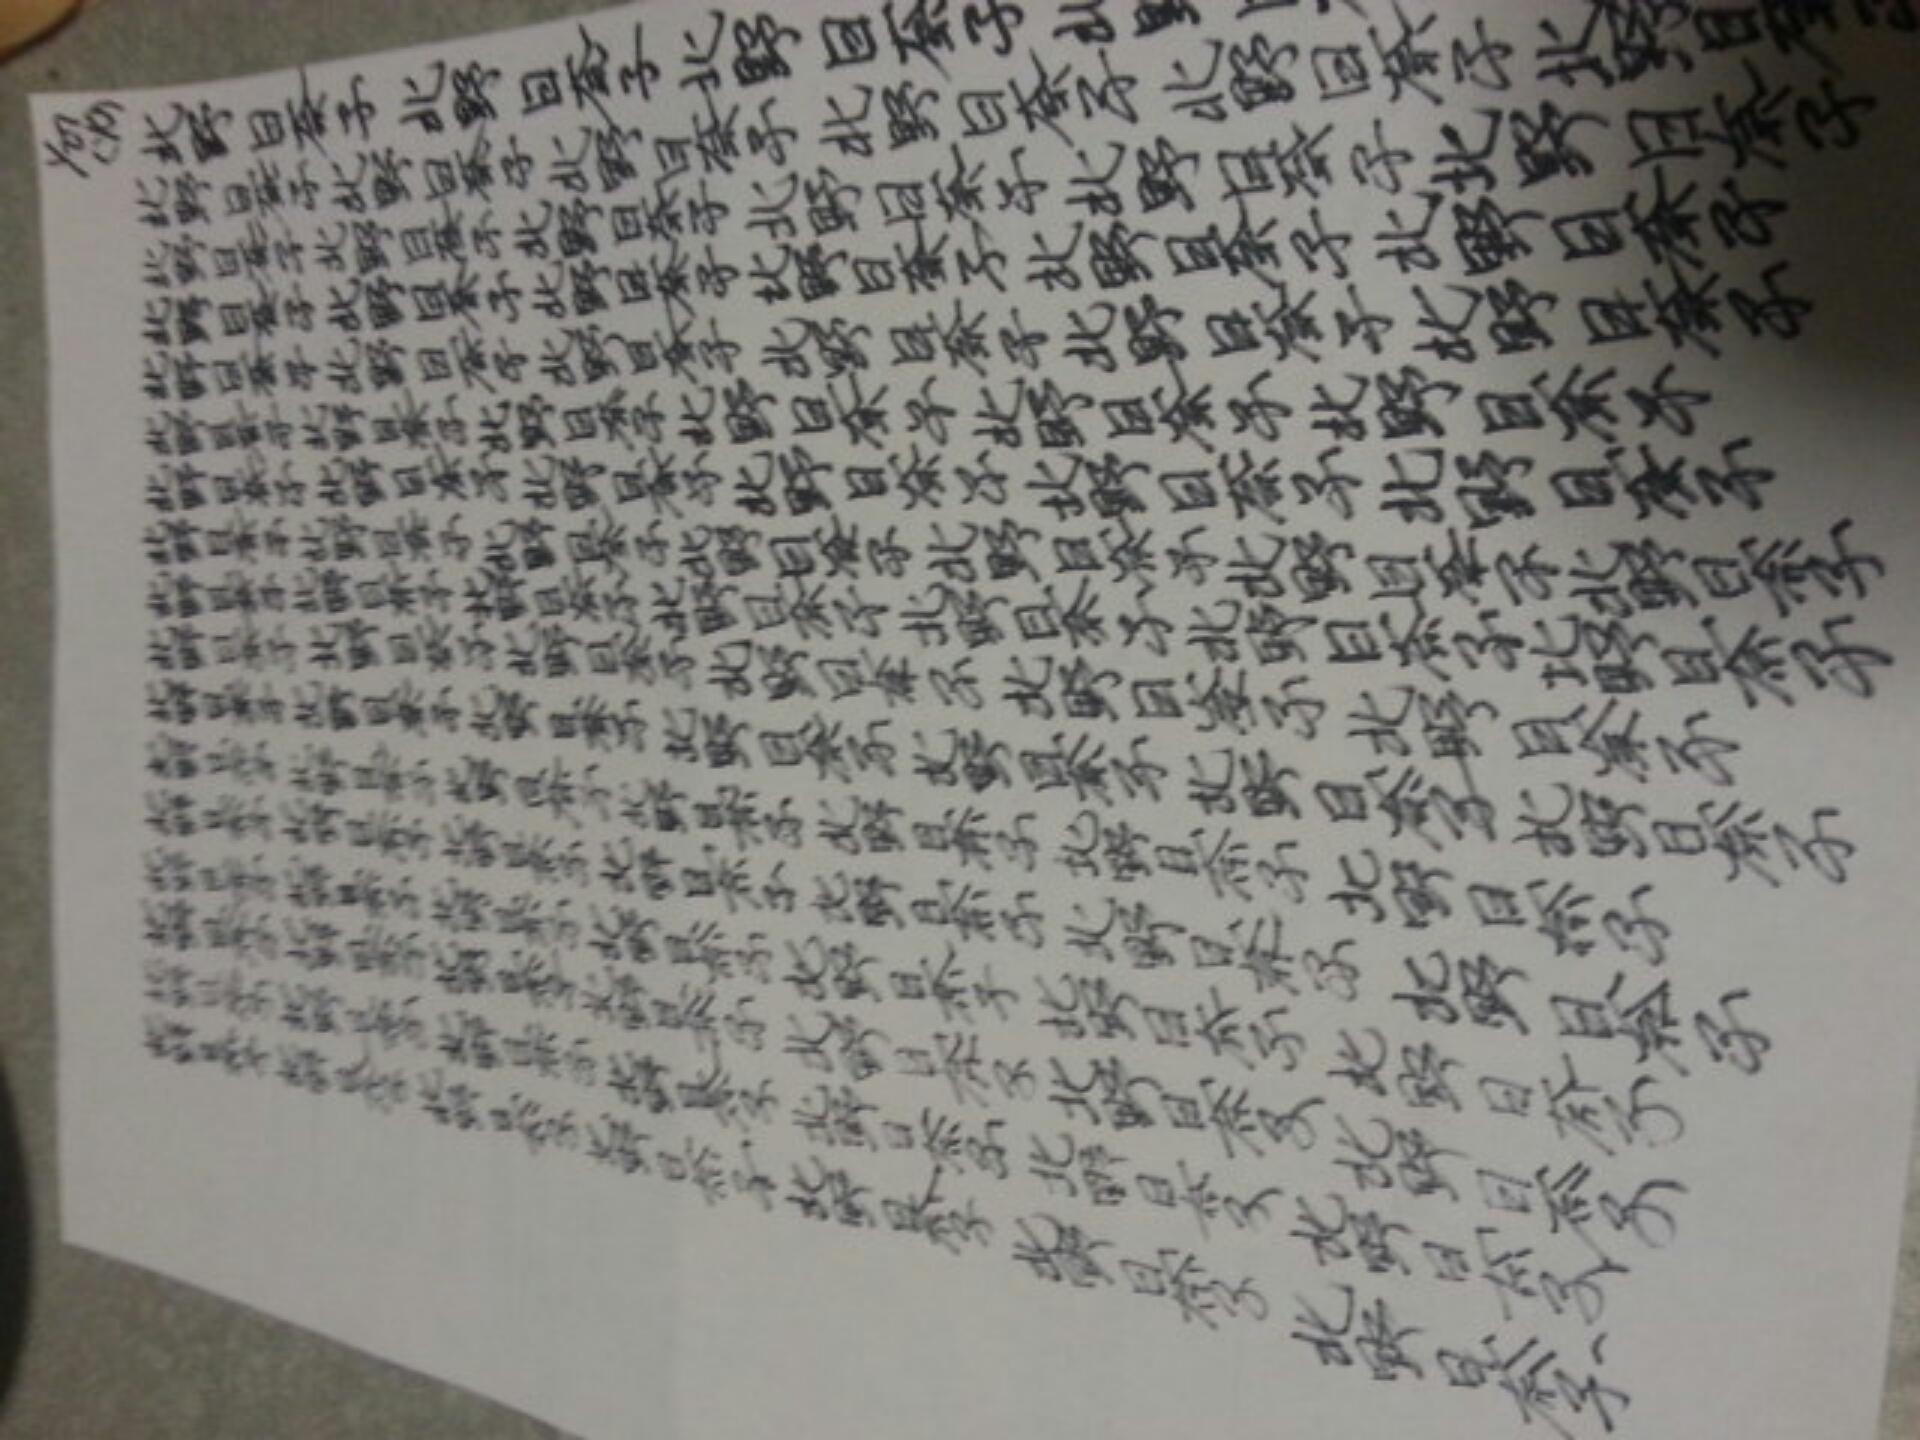 北野日奈子北野日奈子北野日奈子北野日
北野日奈子北野日奈子北野日奈子北野日奈子北野日奈子北野日奈子
北野日奈子北野日奈子北野日奈子北野日奈子北野日奈子北野日奈子
北野日奈子北野日奈子北野日奈子北野日奈子北野日奈子北野日奈子
北野日奈子北野日奈子北野日奈子北野日奈子北野日奈子北野日奈子
北野日奈子北野日奈子北野日奈子北野日奈子北野日奈子北野日奈子
北野日奈子北野日奈子北野日奈子北野日奈子北野日奈子北野日奈子
北野日奈子北野日奈子北野日奈子北野日奈子北野日奈子北野日奈子北野日奈子
北野日奈子北野日奈子北野日奈子北野日奈子北野日奈子北野日奈子北野日奈子
北野日奈子北野日奈子北野日奈子北野日奈子北野日奈子北野日奈子
北野日奈子北野日奈子北野日奈子北野日奈子北野日奈子北野日奈子北野日奈子
北野日奈子北野日奈子北野日奈子北野日奈子北野日奈子北野日奈子北野日奈子
北野日奈子北野日奈子北野日奈子北野日奈子北野日奈子北野日奈子北野日奈子
北野日奈子北野日奈子北野日奈子北野日奈子北野日奈子北野日奈子北野日奈子
北野日奈子北野日奈子北野日奈子北野日奈子北野日奈子北野日奈子北野日奈子
北野日奈子北野日奈子北野日奈子北野日奈子北野日奈子北野日奈子北野日奈子
北野日奈子北野日奈子北野日奈子北野日奈子北野日奈子北野日奈子北野日奈子